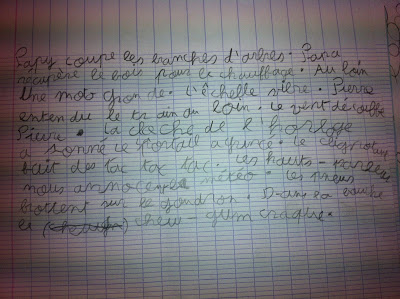 Papy coupe les branches d'arbres. Papa
récupère le bois pour le chauffage. Au loin
Une moto gronde. L'échelle vibre. Pierre
entendu le train du loin. Le vent
Pierre. La cloche de l'horloge
a sonné le portail a grincé. le clignotant
fait des tac tac tac. Les hauts-parleurs
nous annoce la méteo. Les pneus
frottent sur le goudron. Dans sa bouche
le chew-gum craque.